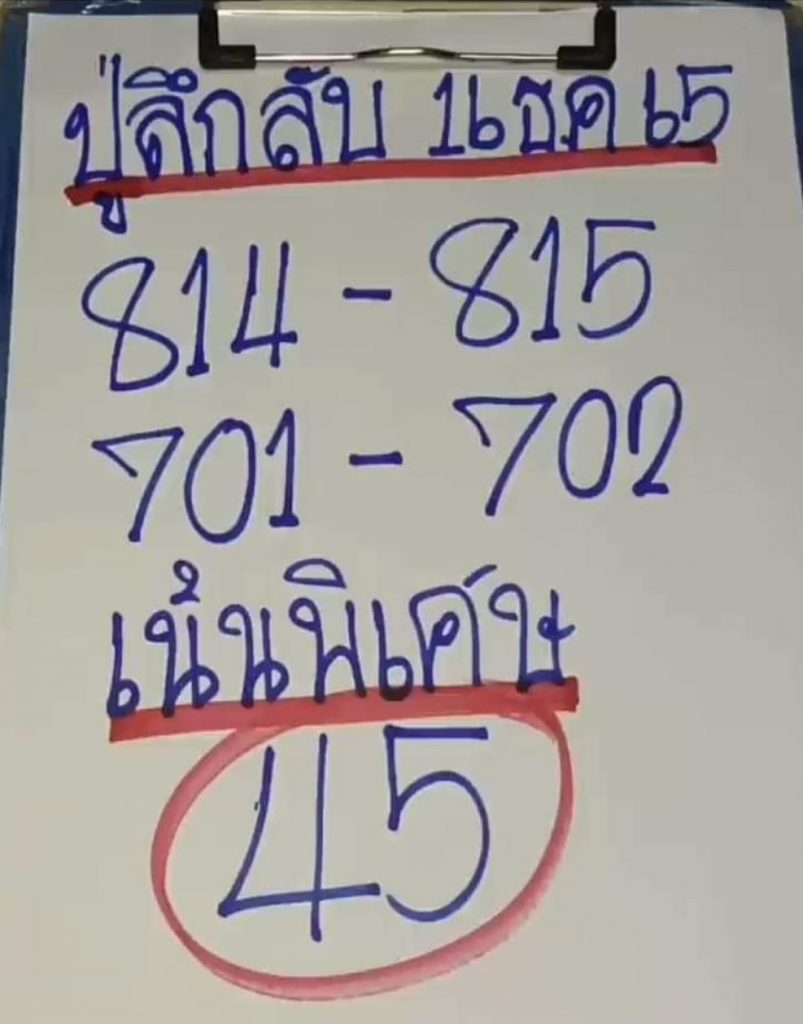 ปู่ลึกลับ 16 ธ.ค 65
814 - 815
701 - 702
เน้นพิเศษ
45